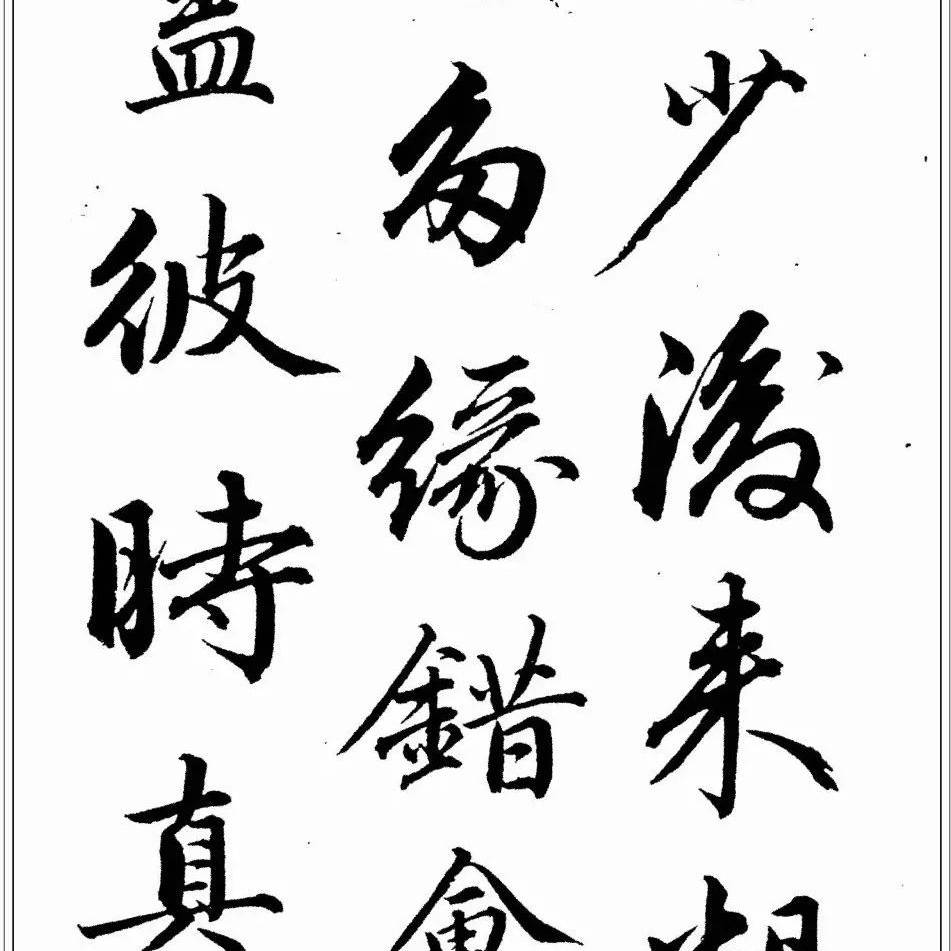 少後来
多緣錯會
蓋彼時真